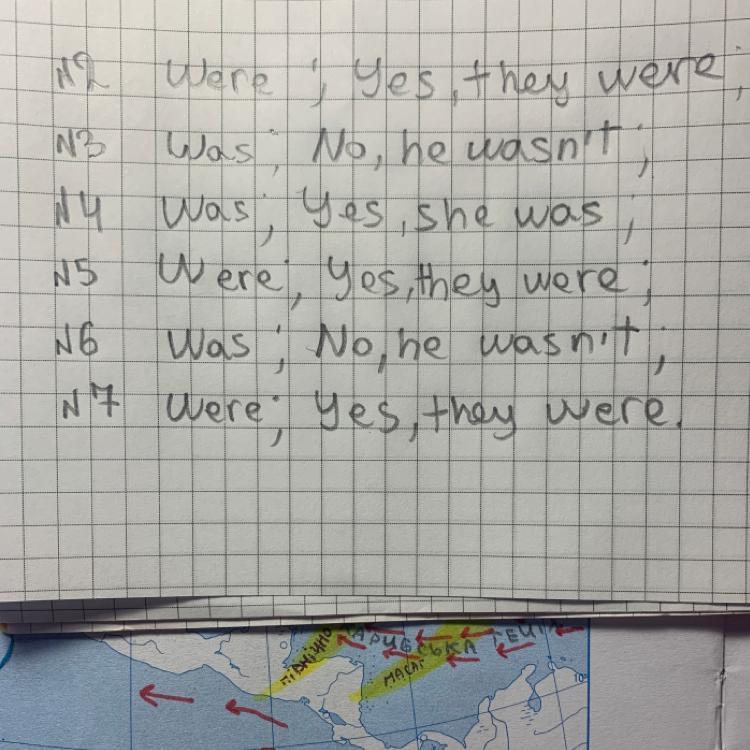 N2 Were ; Yes, they were;
N3 Was; No, he wasn't;
N4 Was; Yes, she was;
N5 Were; Yes, they were;
N6 Was; No, he wasn't;
N7 Were; Yes, they were.
ПІВНІЧНО
ПАСАТ
10°